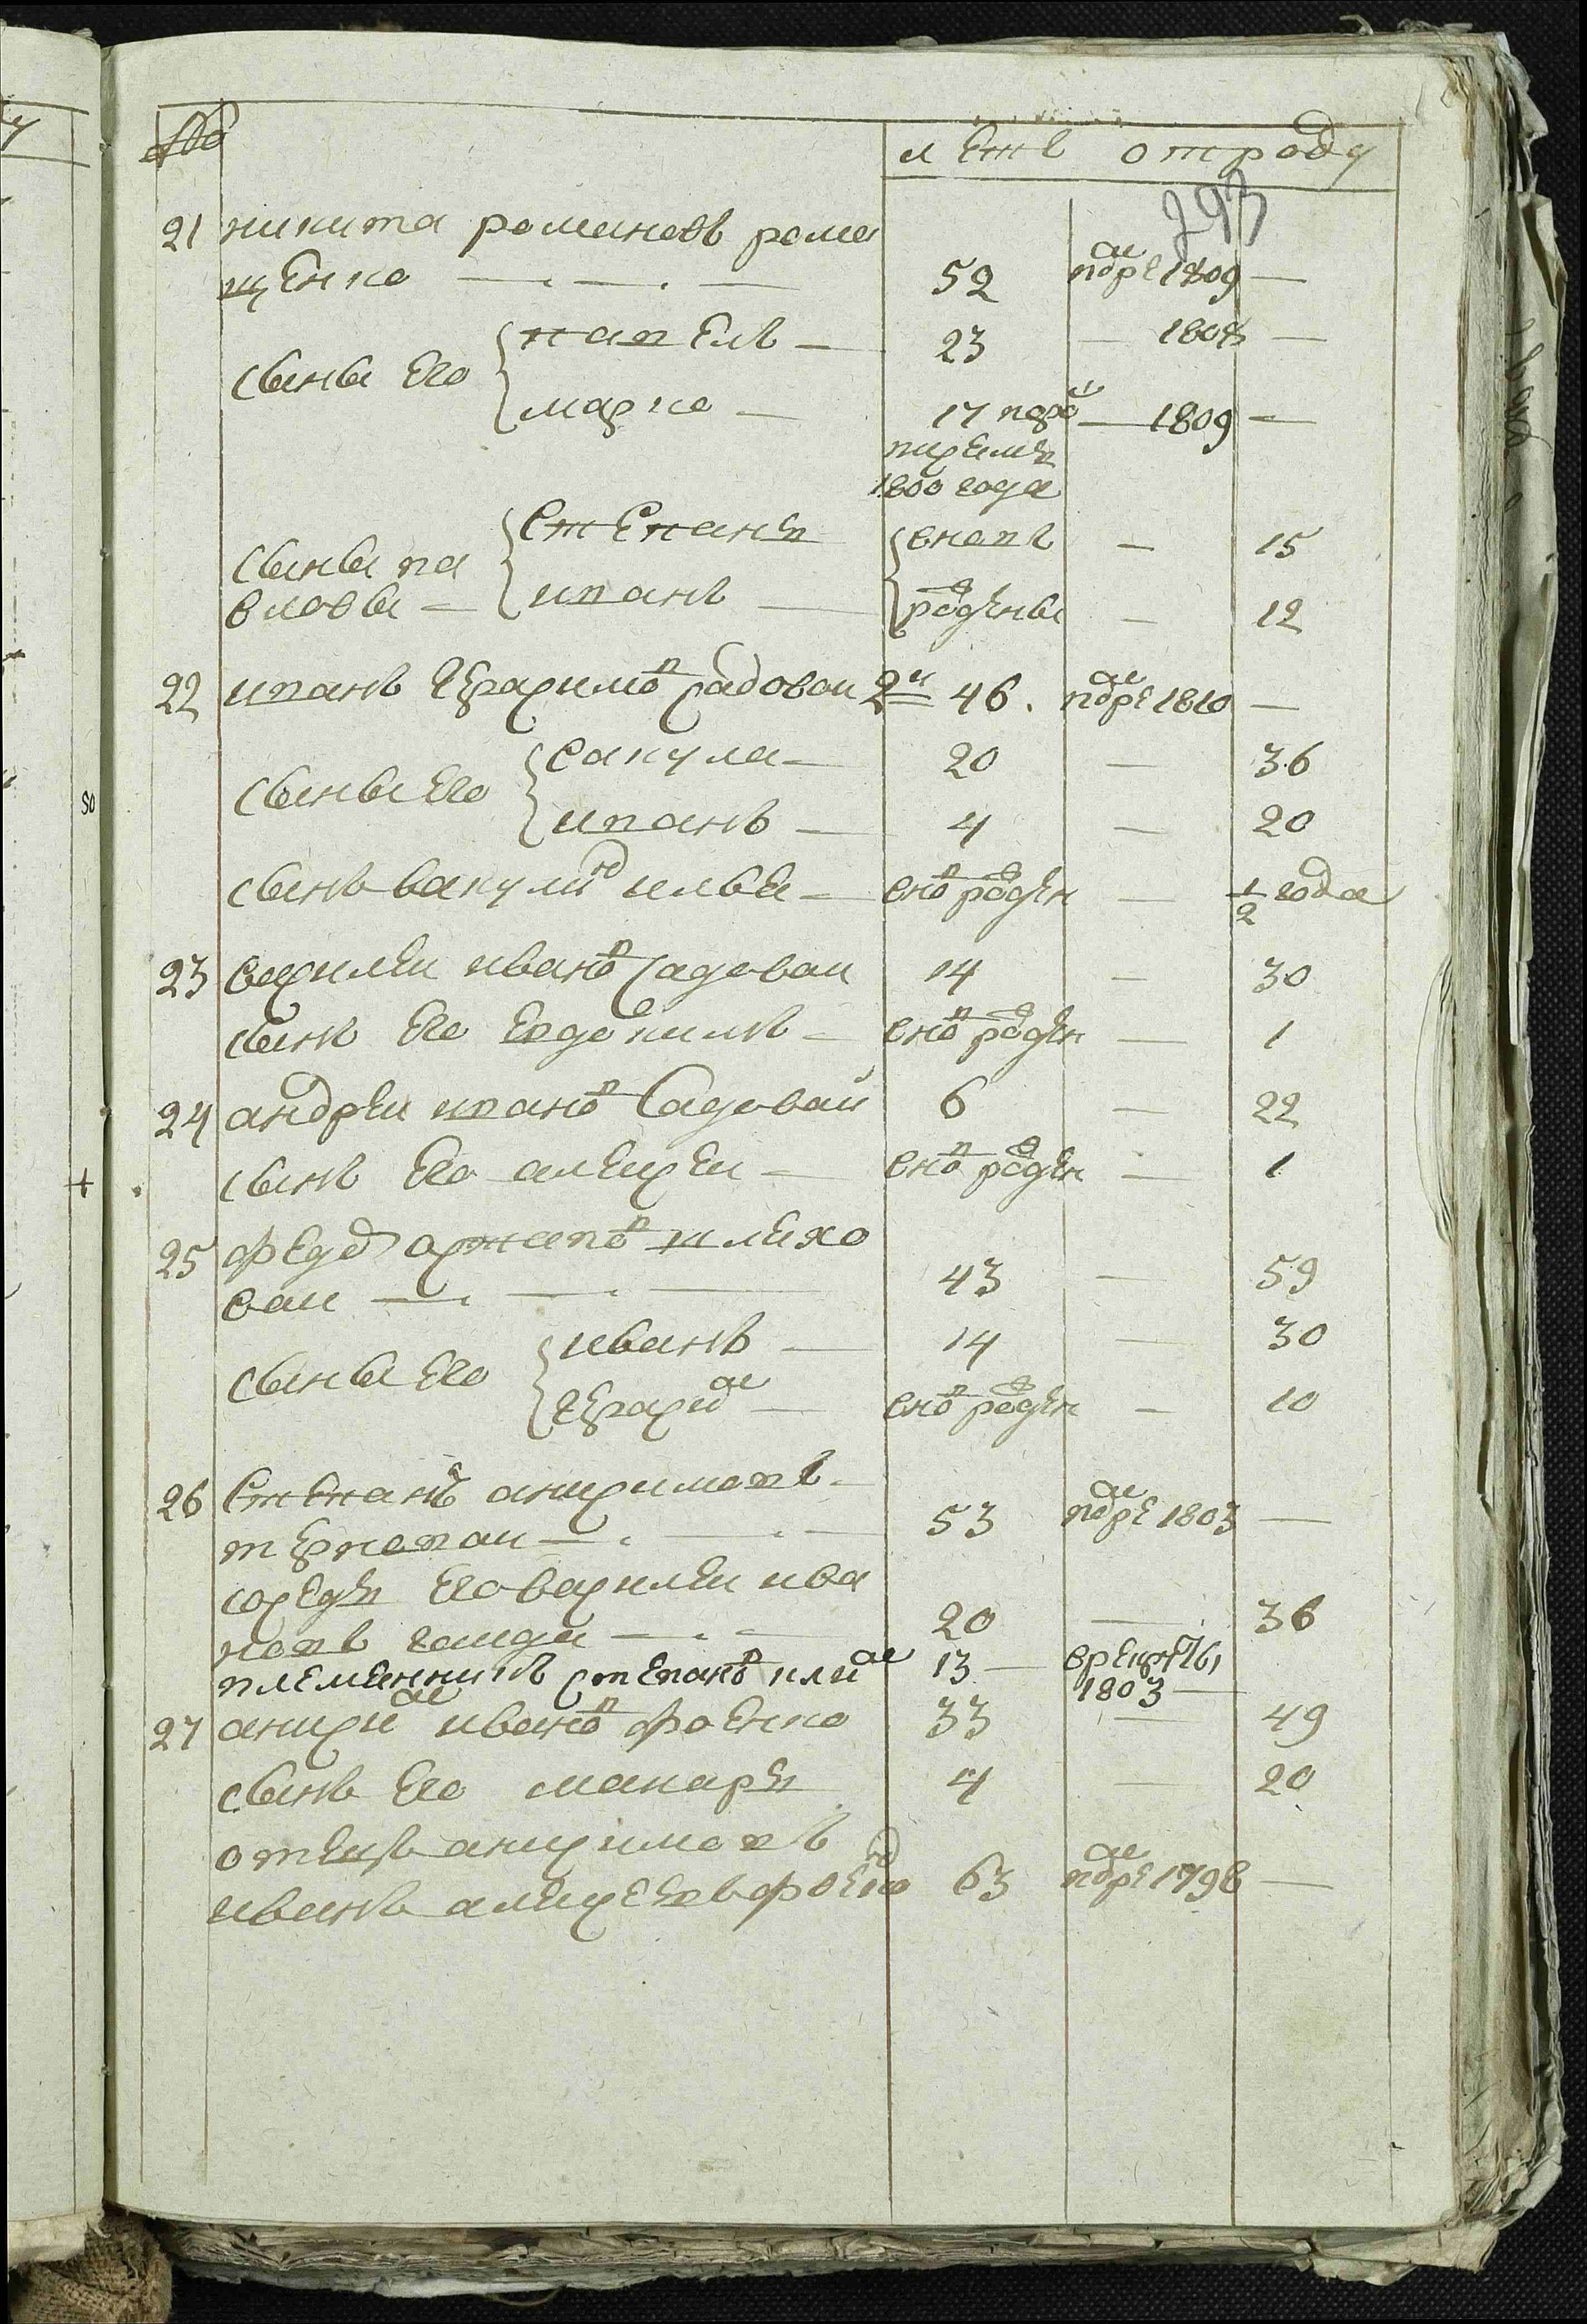 №
летъ отроду
293
21 никита романовъ рома
щенко — . — . — 52 въ 1809 —
сыны его павелъ — 23 — 1808 —
марко — 17 — 1809 —
1800 года
сыны па
вловы — степанъ вновь — 15
иванъ — рождены — 12
22 иванъ герасимовъ садовои 2и 46 . 1810 —
сыны его вакула — 20 — 36
иванъ — 4 — 20
сынъ вакулинъ илья — вновь рожден — 1/2 года
23 василеи ивановъ садовои 14 — 30
сынъ его евдокимъ — вновь рожден — 1
24 андреи ивановъ садовой 6 — 22
сынъ его алексеи — вновь рожден — 1
25 федоръ шлихо
вои — . — . — 43 — 59
сыны его иванъ — 14 — 30
герасим — вновь рожден — 10
26 степанъ анисимовъ
терновои — . — 53 1803 —
соседъ его василеи ива
новъ — . — 20 — 36
племенникъ степановъ клим 13 — 1803 —
27 анисим ивановъ фоенко 33 — 49
сынъ его макаръ 4 — 20
отецъ анисимовъ
иванъ алексеевъ фоенко 63 1798 —
50